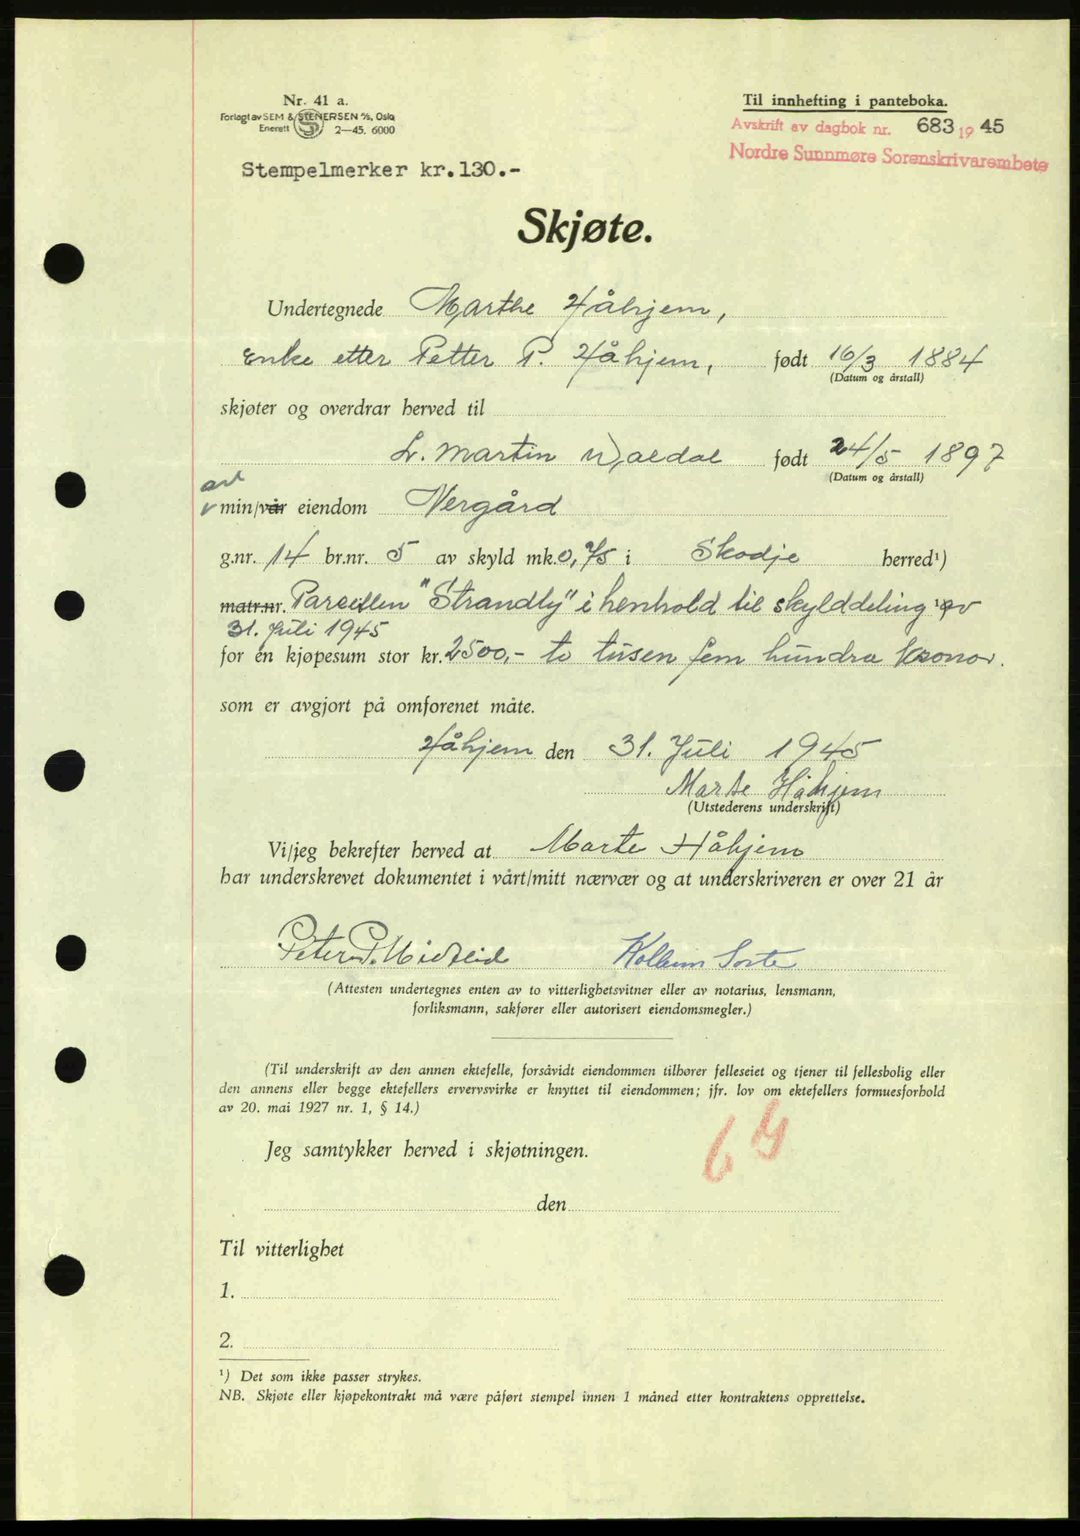 Nr. 41 a.
Forlagt av SEM & STENERSEN A/S, Oslo
Enerett 2—45. 6000
Til innhefting i panteboka.
Avskrift av dagbok nr. 683 1945
Nordre Sunnmøre Sorenskrivarembete
Stempelmerker kr.130.-
Skjøte.
Undertegnede Marthe Håhjem,
Enke etter Petter P. Håhjem, født 16/3 1884
(Datum og årstall)
skjøter og overdrar herved til
L. Martin født 24/5 1897
(Datum og årstall)
av
min/vår eiendom Nergård
g.nr. 14 br.nr. 5 av skyld mk. 0,75 i Skodje herred¹)
matr.nr. Parsellen "Strandly" i henhold til skylddeling av
31. Juli 1945
for en kjøpesum stor kr. 2500,- to tusen fem hundra kronor.
som er avgjort på omforenet måte.
Håhjem den 31. Juli 1945
Marte Håhjem
(Utstederens underskrift)
Vi/jeg bekrefter herved at Marte Håhjem
har underskrevet dokumentet i vårt/mitt nærvær og at underskriveren er over 21 år
Peter P. Midtlid Kolbein Sorte
(Attesten undertegnes enten av to vitterlighetsvitner eller av notarius, lensmann,
forliksmann, sakfører eller autorisert eiendomsmegler.)
(Til underskrift av den annen ektefelle, forsåvidt eiendommen tilhører felleseiet og tjener til fellesbolig eller
den annens eller begge ektefellers ervervsvirke er knyttet til eiendommen; jfr. lov om ektefellers formuesforhold
av 20. mai 1927 nr. 1, § 14.)
Jeg samtykker herved i skjøtningen.
den
Til vitterlighet
1.
2.
¹) Det som ikke passer strykes.
NB. Skjøte eller kjøpekontrakt må være påført stempel innen 1 måned etter kontraktens opprettelse.